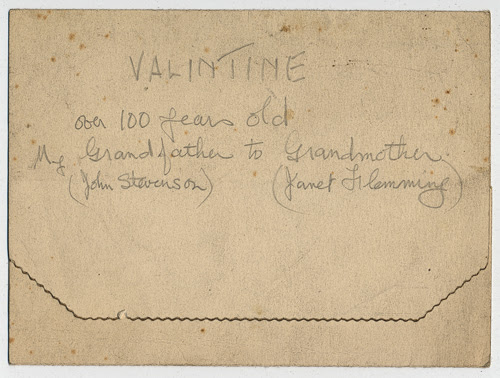 VALINTINE
over 100 years old
My Grandfather to Grandmother
(John Stevenson) (Janet Flemming)